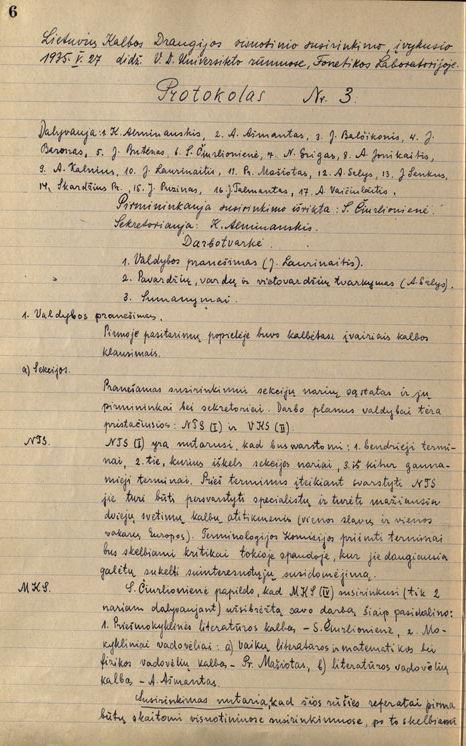 6
Lietuvių Kalbos Draugijos visuotinio susirinkimo, įvykusio
1935.V.27 didž. V.D. Universiteto rūmuose, Fonetikos Laboratorijoje.
Protokolas Nr. 3.
Dalyvauja: 1. K. Alminauskis, 2. A. Ašmantas, 3. J. Balčikonis, 4. J.
Baronas, 5. J. Butėnas, 6. S. Čiurlionienė, 7. N. Grigas, 8. A. Jonikaitis,
9. A. Kalnius, 10. J. Laurinaitis, 11. Pr. Mašiotas, 12. A. Salys, 13. J. Senkus,
14. Skardžius Pr., 15. J. Puzinas, 16. J. Talmantas, 17. A. Vaičiulaitis.
Pirmininkauja susirinkimo išrikta: S. Čiurlionienė.
Sekretoriauja: K. Alminauskis.
Darbotvarkė.
1. Valdybos pranešimas (J. Laurinaitis).
2. Pavardžių, vardų ir vietovardžių tvarkymas (A. Salys).
3. Sumanymai.
1. Valdybos pranešimas.
Pirmoje pasitarimų popietėje buvo kalbėtasi įvairiais kalbos
klausimais.
a) Sekcijos.
Pranešamas susirinkimui sekcijų narių sąstatas ir jų
pirmininkai bei sekretoriai. Darbo planus valdybai tėra
pristačiusios: NTS (I) ir VKS (II).
NTS.
NTS (I) yra nutarusi, kad bus svarstomi: 1. bendrieji termi-
nai, 2. tie, kuriuos iškels sekcijos nariai, 3. iš kitur gauna-
mieji terminai. Prieš terminus įteikiant svarstyti NTS
jie turi būti persvarstyti specialistų ir turėti mažiausia
dviejų svetimų kalbų atitikmenis (vienos slavų ir vienos
vakarų Europos). Terminologijos Komisijos priimti terminai
bus skelbiami kritikai tokioje spaudoje, kur jie daugiausia
galėtų sukelti suinteresuotųjų susidomėjimą.
MKS.
S. Čiurlionienė papildo, kad MKS (IV) susirinkusi (tik 2
nariam dalyvaujant) užsibrėžta savo darbą šiaip pasidalino:
1. Priešmokyklinės literatūros kalba, - S. Čiurlionienė, 2. Mo-
kykliniai vadovėliai: a) vaikų literatūros ir matematikos bei
fizikos vadovėlių kalba - Pr. Mašiotas, b) literatūros vadovėlių
kalba - A. Ašmantas.
Susirinkimas nutaria, kad šios rūšies referatai pirma
būtų skaitomi visuotiniuose susirinkimuose, po to skelbiami